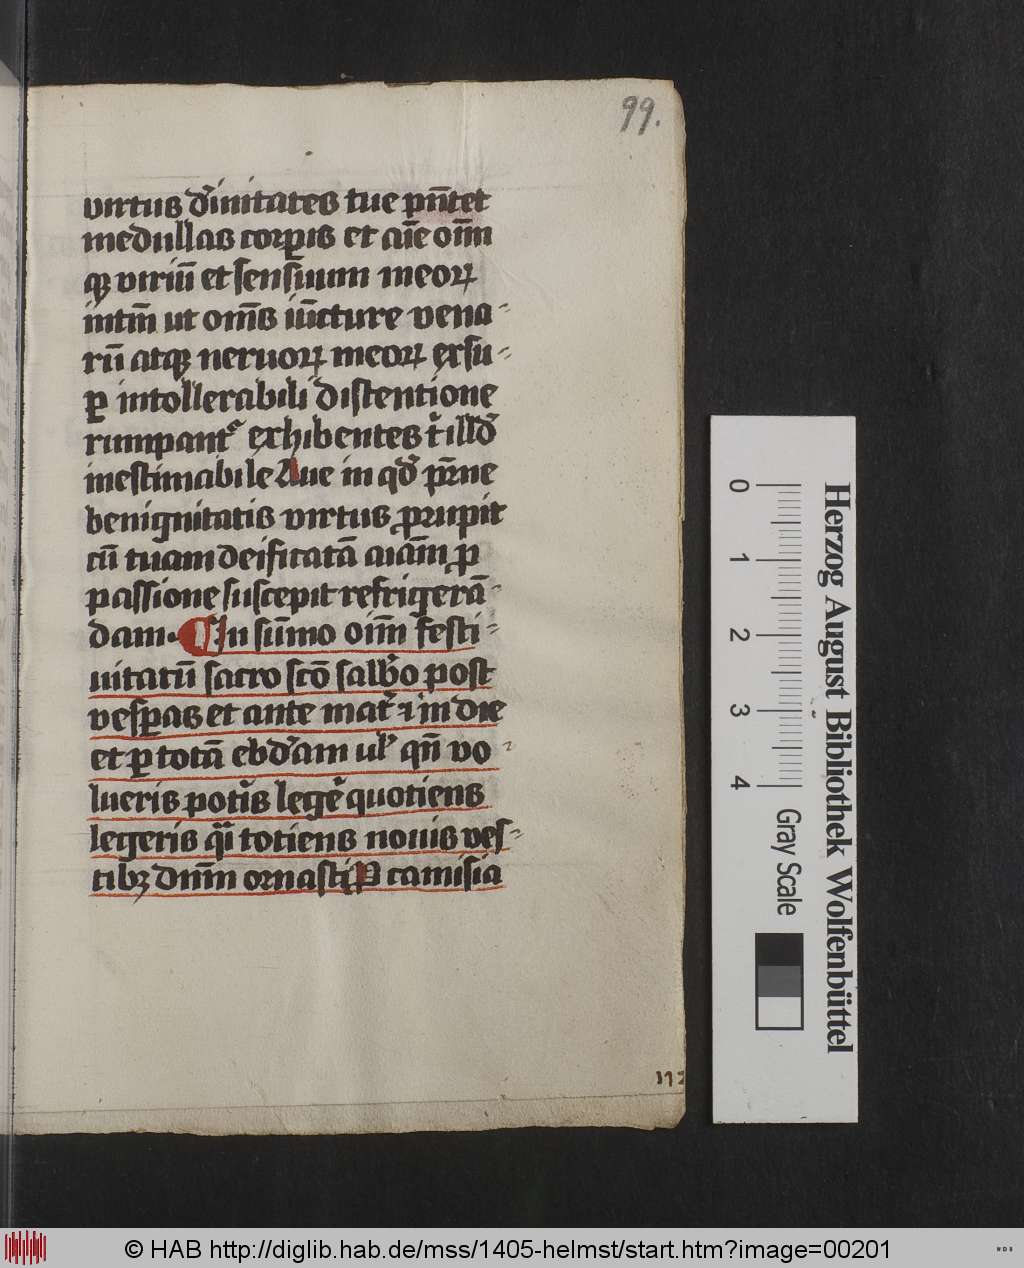 99.
virtus d'initates tue pn̄tet
medullas corꝑis et aīe om̄
qꝫ viriū et sensuum meoꝝ
intm̄ ut om̄s iūcture vena-
rū atqꝫ neruoꝝ meoꝝ exsu-
ꝑ intollerabili distentione
rumpant' exhibentes t' illd'
inestimabile Aue in qd' pr̄ne
benignitatis virtus ꝓrupit
cū tuam deificatā aiām ꝓ
passione suscepit refrigerā-
dam. In sūmo om̄ festi-
uitatū sacro scō salb'o post
vesꝑas et ante mat' i in die
et ꝑ totā ebd'am ul' qn̄ vo
lueris pot'is lege' quotiens
legeris qi totiens nouis ves-
tibꝫ dnm̄ ornasti P camisia
112
Herzog August Bibliothek Wolfenbüttel
0 1 2 3 4
Gray Scale
© HAB http://diglib.hab.de/mss/1405-helmst/start.htm?image=00201